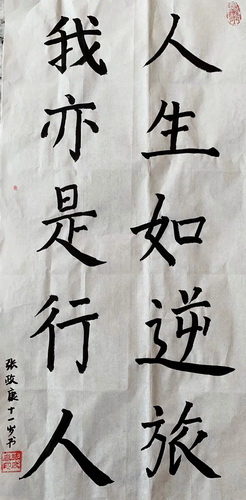 人生如逆旅
我亦是行人
张政康十一岁书